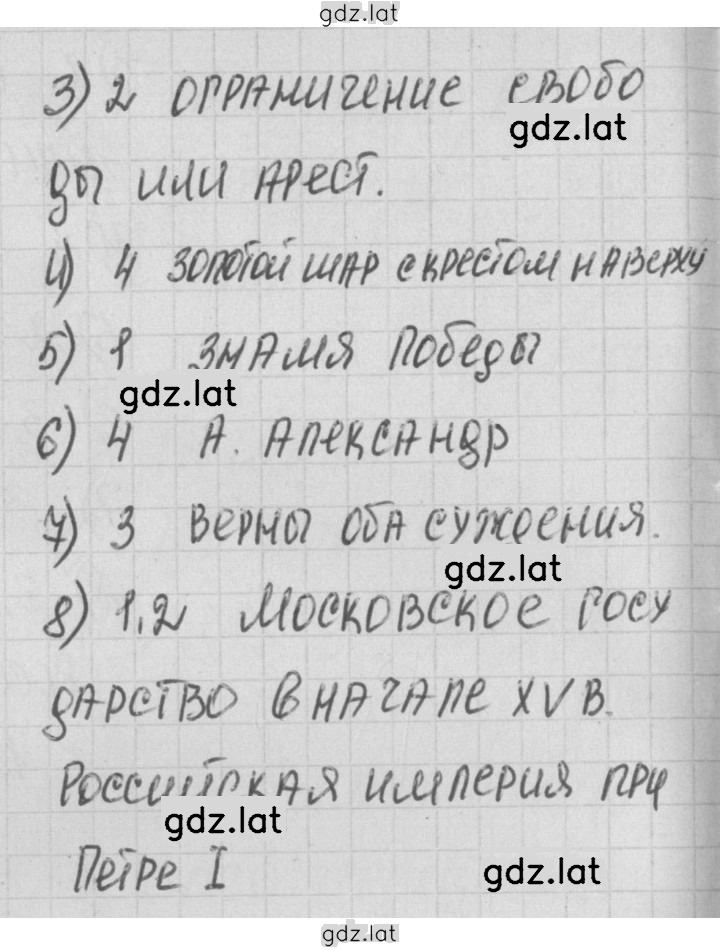 gdz.lat
3) 2 ограничение свобо
gdz.lat
ды или арест.
4) 4 золотой шар с крестом наверху
5) 1 знамя Победы
gdz.lat
6) 4 А. Александр
7) 3 верны оба суждения.
gdz.lat
8) 1,2 Московское госу
дарство в начале XV в.
Российская империя при
gdz.lat
Петре I
gdz.lat
gdz.lat